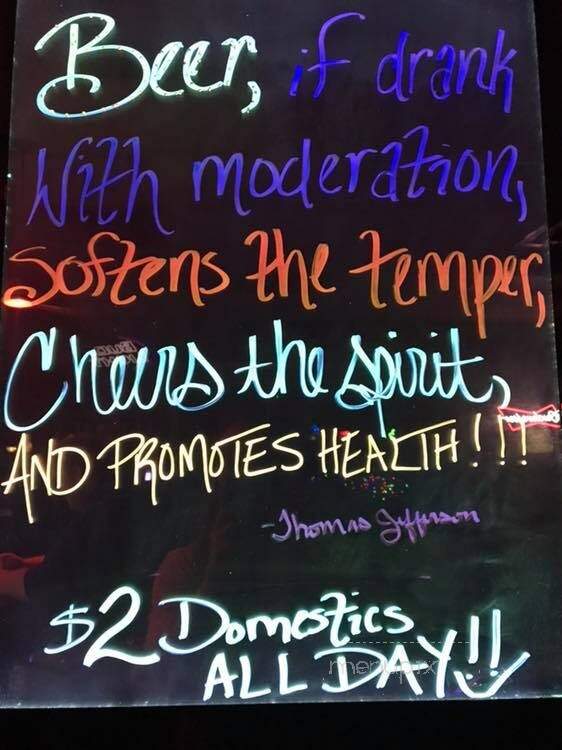 Beer, if drank
With moderation,
Softens the temper,
Cheers the spirit,
AND PROMOTES HEALTH!!!
-Thomas Jefferson
$2 Domestics
ALL DAY!!
menupix